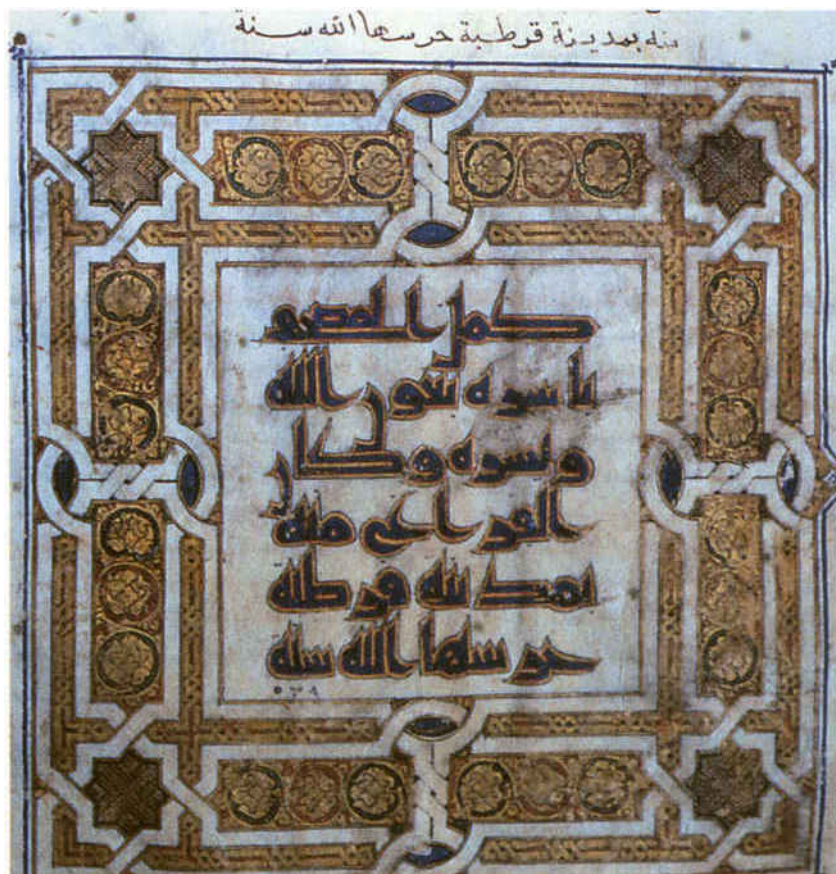 منه بمدينة قرطبة حرسها الله سنة
كمل المصحف
باسره بعون الله
ويسره وكان
الفراغ منه
بمدينة قرطبة
حرسها الله سنة